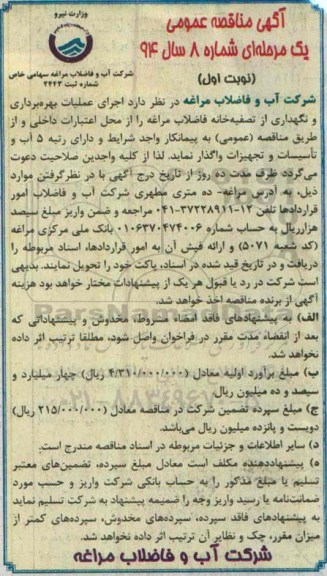 آگهی مناقصه عمومی
یک مرحله‌ای شماره ۸ سال ۹۴
(نوبت اول)
وزارت نیرو
شرکت آب و فاضلاب مراغه سهامی خاص
شماره ثبت ۲۴۴۳
شرکت آب و فاضلاب مراغه در نظر دارد اجرای عملیات بهره‌برداری
و نگهداری از تصفیه‌خانه فاضلاب مراغه را از محل اعتبارات داخلی و از
طریق مناقصه (عمومی) به پیمانکار واجد شرایط و دارای رتبه ۵ آب و
تأسیسات و تجهیزات واگذار نماید. لذا از کلیه واجدین صلاحیت دعوت
می‌گردد ظرف مدت ده روز از تاریخ درج آگهی با در نظرگرفتن موارد
ذیل، به آدرس مراغه- ده متری مطهری شرکت آب و فاضلاب امور
قراردادها تلفن ۱۲-۳۷۲۳۸۹۱۱-۰۴۱ مراجعه و ضمن واریز مبلغ سیصد
هزارریال به حساب شماره ۰۱۰۶۳۷۰۴۷۴۰۰۶ بانک ملی مرکزی مراغه
(کد شعبه ۵۰۷۱) و ارائه فیش آن به امور قراردادها، اسناد مربوطه را
دریافت و در تاریخ قید شده در اسناد، پاکت خود را تحویل نمایند. بدیهی
است شرکت در رد یا قبول هر یک از پیشنهادات مختار خواهد بود هزینه
آگهی از برنده مناقصه اخذ خواهد شد.
الف) به پیشنهادهای فاقد امضاء مشروط، مخدوش و پیشنهاداتی که
بعد از انقضاء مدت مقرر در فراخوان واصل شود، مطلقا ترتیب اثر داده
نخواهد شد.
ب) مبلغ برآورد اولیه معادل (۴/۳۱۰/۰۰۰/۰۰۰ ریال) چهار میلیارد و
سیصد و ده میلیون ریال
ج) مبلغ سپرده تضمین شرکت در مناقصه معادل (۲۱۵/۰۰۰/۰۰۰ ریال)
دویست و پانزده میلیون ریال می‌باشد.
د) سایر اطلاعات و جزئیات مربوطه در اسناد مناقصه مندرج است.
ه) پیشنهاددهنده مکلف است معادل مبلغ سپرده، تضمین‌های معتبر
تسلیم یا مبلغ مذکور را به حساب بانکی شرکت واریز و حسب مورد
ضمانت‌نامه یا رسید واریز وجه را ضمیمه پیشنهاد به شرکت تسلیم نماید
به پیشنهادهای فاقد سپرده، سپرده‌های مخدوش، سپرده‌های کمتر از
میزان مقرر، چک و نظایر آن ترتیب اثر داده نخواهد شد.
شرکت آب و فاضلاب مراغه